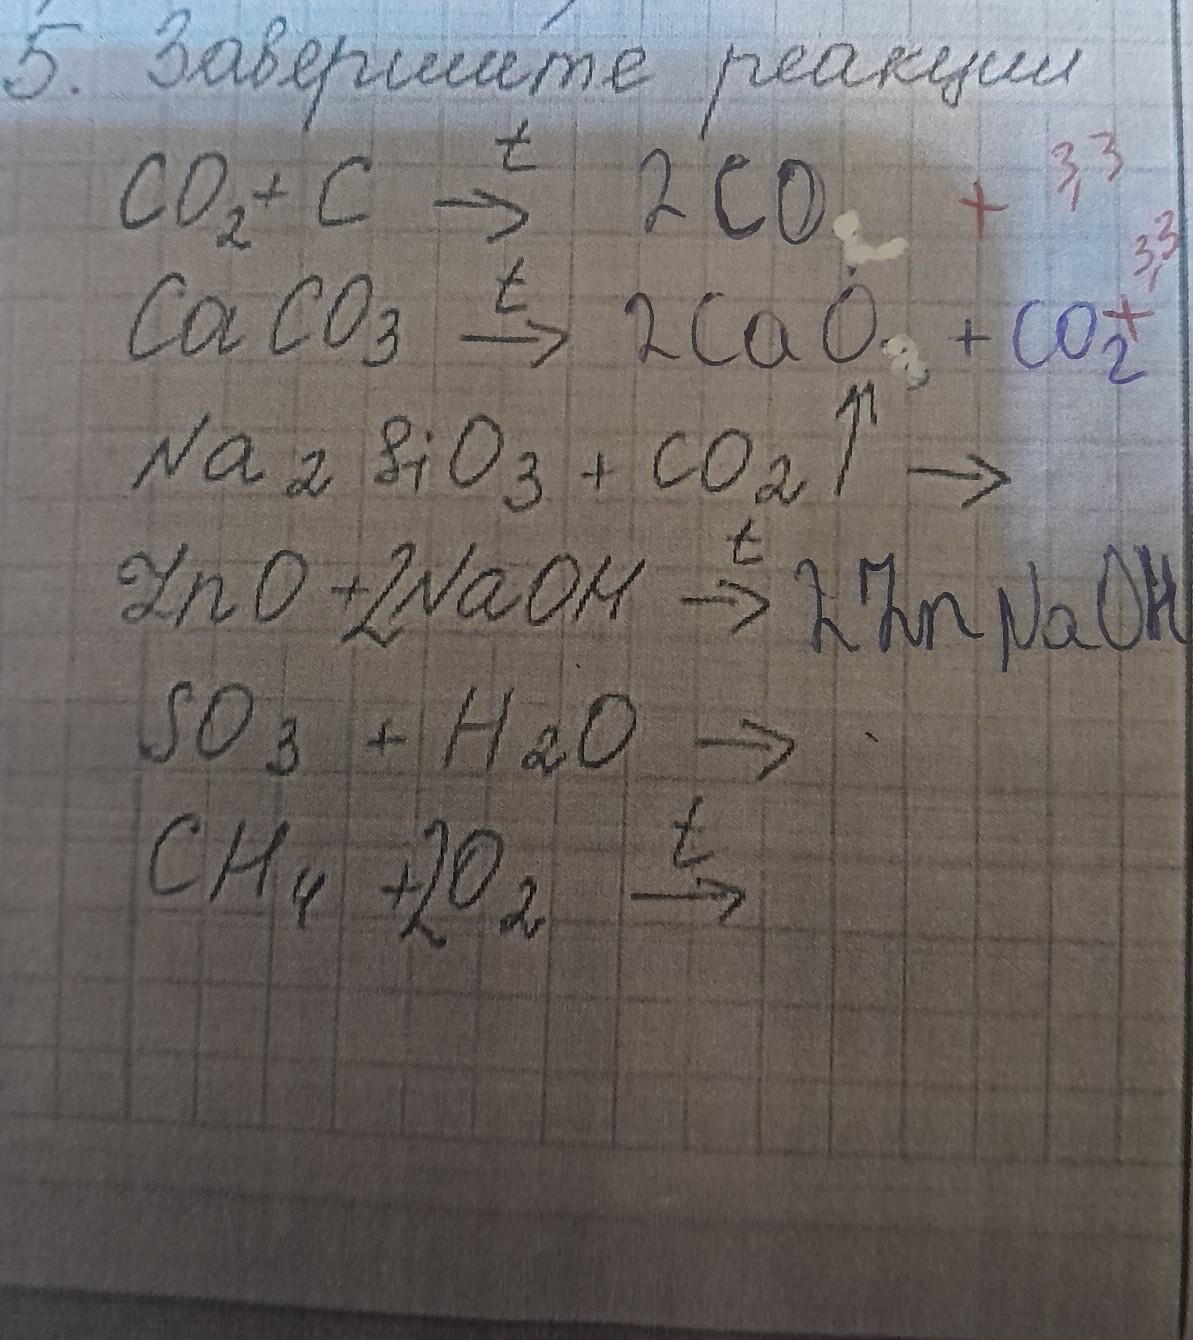 5. Завершите реакции
CO₂ + C →ᵗ 2CO + 3,3
CaCO₃ →ᵗ 2CaO + CO₂ + 3,3
Na₂SiO₃ + CO₂↑ →
ZnO + 2NaOH →ᵗ 2ZnNaOH
SO₃ + H₂O →
CH₄ + 2O₂ →ᵗ